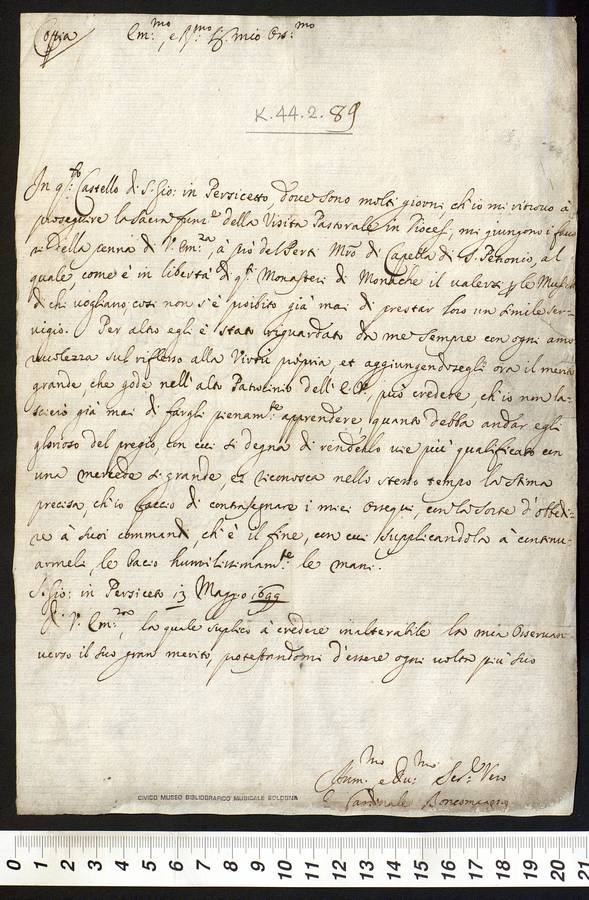 Copia Em:mo, e R:mo Sig: mio Oss:mo
K.44.2.89
In q:to Castello di S. Gio: in Persiceto, dove sono molti giorni, ch'io mi ritrovo à
proseguire la sacra funz:e della Visita Pastorale in Diocesi, mi giungono i favo
ri della penna di V. Em:za, à prò del Perti Mro di Capella di S. Petronio, al
quale, come è in libertà di q:ti Monasteri di Monache il valersi p le Musiche
di chi vogliano, così non s'è proibito già mai di prestar loro un simile ser-
vigio. Per altro egli è stato riguardato da me sempre con ogni amo
revolezza sul riflesso alla Virtù propria, et aggiungendosegli ora il merito
grande, che gode nell'alto Patrocinio dell'E.V., può credere, ch'io non la-
scierò già mai di fargli pienam:te apprendere quanto debba andar egli
glorioso del pregio, con cui si degna di renderlo vie più qualificato con
una mercede sì grande, e riconosca nello stesso tempo la stima
precisa, ch'io faccio di contrasegnare i miei ossequi, con la sorte d'obbedi-
re à suoi comandi, ch'è il fine, con cui supplicandola à continu-
armeli, le bacio humilissimam:te le mani.
S. Gio: in Persiceto 13 Maggio 1699
Di V. Em:za, la quale suplico à credere inalterabile la mia osservanza
verso il suo gran merito, protestandomi d'essere ogni volta più suo
Hum:mo e Du:mo Ser:e Vero
Il Cardinale Boncompagni
CIVICO MUSEO BIBLIOGRAFICO MUSICALE BOLOGNA
0 1 2 3 4 5 6 7 8 9 10 11 12 13 14 15 16 17 18 19 20 21